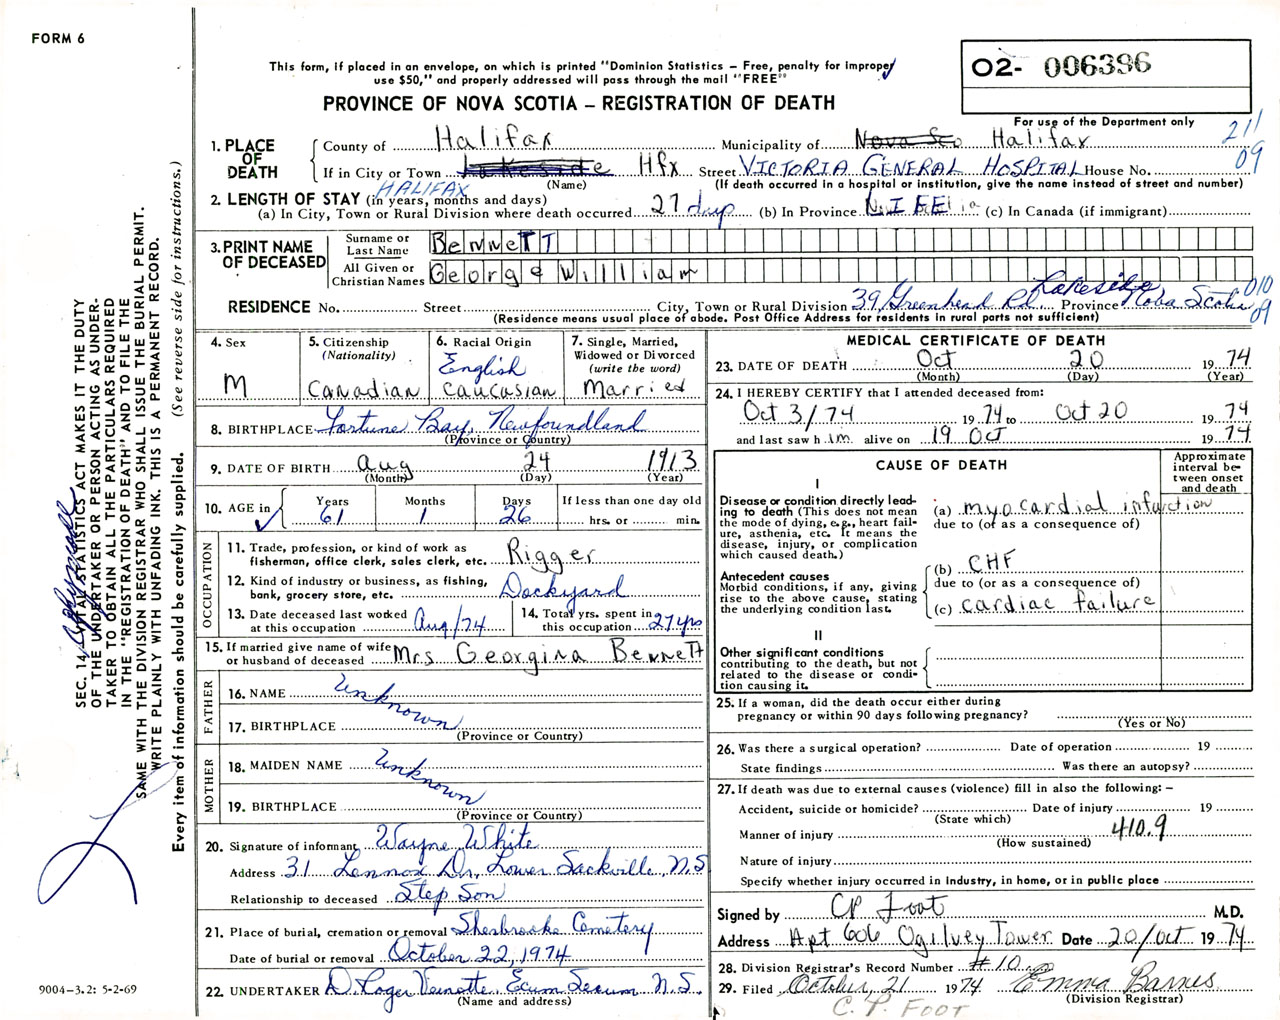 FORM 6
This form, if placed in an envelope, on which is printed "Dominion Statistics – Free, penalty for improper
use $50," and properly addressed will pass through the mail "FREE"
PROVINCE OF NOVA SCOTIA – REGISTRATION OF DEATH
O2- 006386
For use of the Department only
211
09
1. PLACE OF DEATH
County of Halifax Municipality of Nova Sco Halifax
If in City or Town Lakeside Hfx Street VICTORIA GENERAL HOSPITAL House No.
(Name) (If death occurred in a hospital or institution, give the name instead of street and number)
HALIFAX
2. LENGTH OF STAY (in years, months and days)
(a) In City, Town or Rural Division where death occurred 27 days (b) In Province LIFE (c) In Canada (if immigrant)
3. PRINT NAME OF DECEASED
Surname or Last Name BenneTT
All Given or Christian Names George William
Lakeside 010
RESIDENCE No. Street City, Town or Rural Division 39 Greenhead Rd Province Nova Scotia 09
(Residence means usual place of abode. Post Office Address for residents in rural parts not sufficient)
4. Sex
M
5. Citizenship
(Nationality)
Canadian
6. Racial Origin
English
Caucasian
7. Single, Married,
Widowed or Divorced
(write the word)
Married
8. BIRTHPLACE Fortune Bay, Newfoundland
(Province or Country)
9. DATE OF BIRTH Aug 24 1913
(Month) (Day) (Year)
10. AGE in Years Months Days If less than one day old
61 1 26 hrs. or min.
OCCUPATION
11. Trade, profession, or kind of work as
fisherman, office clerk, sales clerk, etc. Rigger
12. Kind of industry or business, as fishing,
bank, grocery store, etc. Dockyard
13. Date deceased last worked
at this occupation Aug/74
14. Total yrs. spent in
this occupation 27 yrs
15. If married give name of wife
or husband of deceased Mrs Georgina Bennett
FATHER
16. NAME Unknown
17. BIRTHPLACE
(Province or Country)
MOTHER
18. MAIDEN NAME Unknown
19. BIRTHPLACE
(Province or Country)
20. Signature of informant Wayne White
Address 31 Lennox Dr, Lower Sackville, N.S
Relationship to deceased Step Son
21. Place of burial, cremation or removal Sherbrooke Cemetery
Date of burial or removal October 22, 1974
22. UNDERTAKER D. Roger Ecum Secum N.S.
(Name and address)
MEDICAL CERTIFICATE OF DEATH
23. DATE OF DEATH Oct 20 19 74
(Month) (Day) (Year)
24. I HEREBY CERTIFY that I attended deceased from:
Oct 3/74 19 74 to Oct 20 19 74
and last saw him alive on 19 Oct 19 74
CAUSE OF DEATH
Approximate
interval be-
tween onset
and death
I
Disease or condition directly lead-
ing to death (This does not mean
the mode of dying, e.g., heart fail-
ure, asthenia, etc. It means the
disease, injury, or complication
which caused death.)
(a) myocardial infarction
due to (or as a consequence of)
Antecedent causes
Morbid conditions, if any, giving
rise to the above cause, stating
the underlying condition last.
(b) CHF
due to (or as a consequence of)
(c) cardiac failure
II
Other significant conditions
contributing to the death, but not
related to the disease or condi-
tion causing it.
25. If a woman, did the death occur either during
pregnancy or within 90 days following pregnancy?
(Yes or No)
26. Was there a surgical operation? Date of operation 19
State findings Was there an autopsy?
27. If death was due to external causes (violence) fill in also the following: –
Accident, suicide or homicide? Date of injury 19
(State which)
410.9
Manner of injury
(How sustained)
Nature of injury
Specify whether injury occurred in industry, in home, or in public place
Signed by CP Foot M.D.
Address Apt 606 Ogilvey Tower Date 20/Oct 19 74
28. Division Registrar's Record Number #10
29. Filed October, 21 1974 Emma Barnes
(Division Registrar)
C. P. FOOT
SEC. 14, VITAL STATISTICS ACT MAKES IT THE DUTY
OF THE UNDERTAKER OR PERSON ACTING AS UNDER-
TAKER TO OBTAIN ALL THE PARTICULARS REQUIRED
IN THE "REGISTRATION OF DEATH" AND TO FILE THE
SAME WITH THE DIVISION REGISTRAR WHO SHALL ISSUE THE BURIAL PERMIT.
WRITE PLAINLY WITH UNFADING INK. THIS IS A PERMANENT RECORD.
Every item of information should be carefully supplied. (See reverse side for instructions.)
9004-3.2: 5-2-69